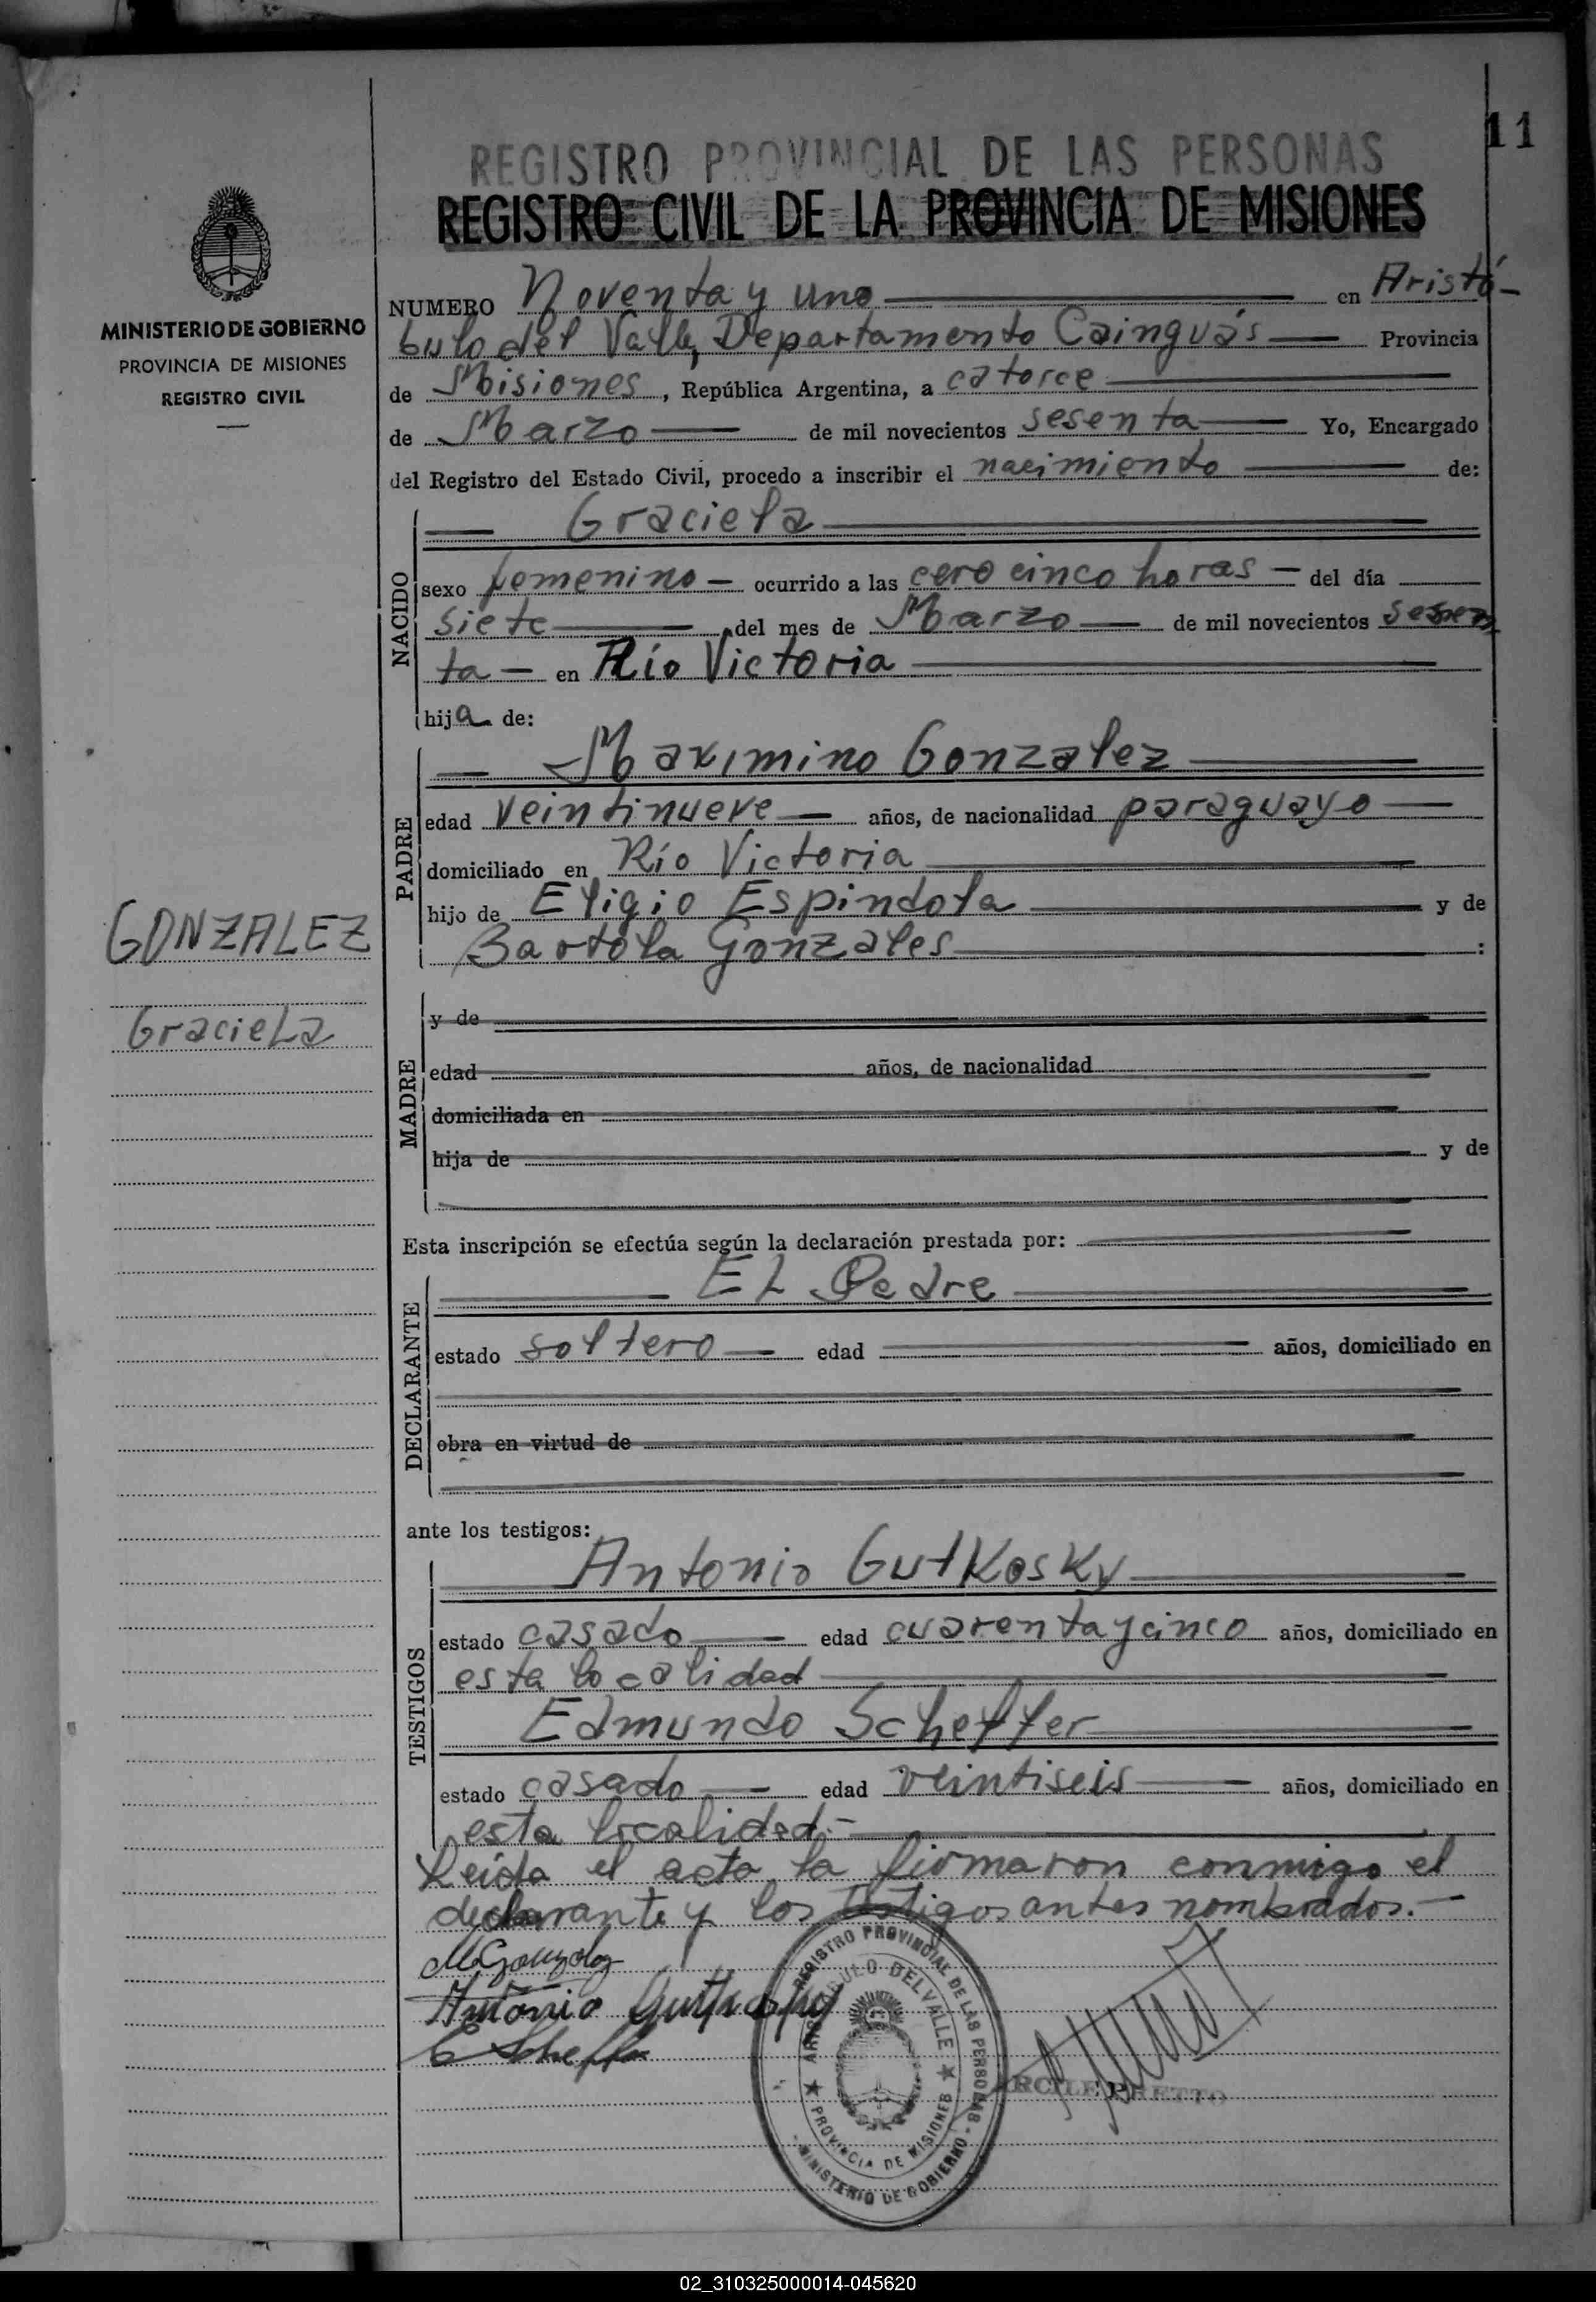 11
REGISTRO PROVINCIAL DE LAS PERSONAS
REGISTRO CIVIL DE LA PROVINCIA DE MISIONES
MINISTERIO DE GOBIERNO
PROVINCIA DE MISIONES
REGISTRO CIVIL
NUMERO Noventa y uno en Aristó-
bulo del Valle, Departamento Cainguás Provincia
de Misiones, República Argentina, a catorce
de Marzo de mil novecientos sesenta Yo, Encargado
del Registro del Estado Civil, procedo a inscribir el nacimiento de:
Graciela
NACIDO
sexo femenino - ocurrido a las cero cinco horas - del día
siete del mes de Marzo de mil novecientos sesen
ta - en Río Victoria
hija de:
Maximino Gonzalez
PADRE
edad veintinueve años, de nacionalidad paraguayo
domiciliado en Río Victoria
hijo de Eligio Espindola y de
Bartola Gonzales :
GONZALEZ
Graciela
MADRE
y de
edad años, de nacionalidad
domiciliada en
hija de y de
Esta inscripción se efectúa según la declaración prestada por:
El Padre
DECLARANTE
estado soltero edad años, domiciliado en
obra en virtud de
ante los testigos:
Antonio Gutkosky
TESTIGOS
estado casado edad cuarenta y cinco años, domiciliado en
esta localidad
Edmundo Scheffer
estado casado edad veintiseis años, domiciliado en
esta localidad.-
Leída el acta la firmaron conmigo el
declarante y los testigos antes nombrados.-
MGonzalez
Antonio Gutkosky
E Scheffer
REGISTRO PROVINCIAL DE LAS PERSONAS - MINISTERIO DE GOBIERNO -
ARISTOBULO DEL VALLE ★ PROVINCIA DE MISIONES ★
02_310325000014-045620